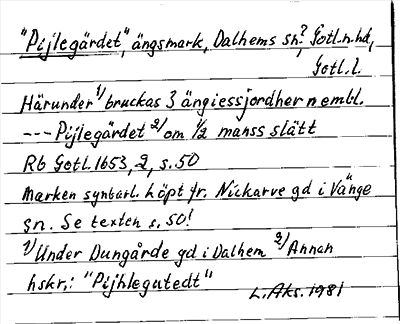 "Pijlegärdet", ängsmark, Dalhems sn? Gotl.n.hd,
Gotl.l.
Härunder 1/ bruckas 3 ängiessjordher nembl.
--- Pijlegärdet 2/ om 1/2 manss slätt
Rb Gotl. 1653, 2, s. 50
Marken synbarl. köpt fr. Nickarve gd i Vänge
sn. Se texten s. 50!
1/ Under Dungårde gd i Dalhem 2/ Annan
hskr.: "Pijhlegutedt"
L. Aks. 1981